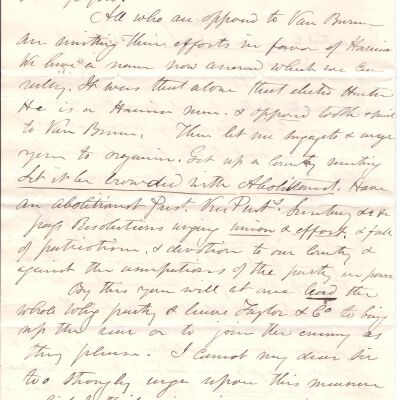 All who are opposed to Van Buren
are uniting their efforts in favor of Harrison
We have a name now around which we can
rally. It was that alone that elected Hunter
He is a Harrison man. & opposed tooth & nail
to Van Buren. Then let me suggest & urge
you to organize. Get up a County meeting
Let it be crowded with Abolitionist. Have
an abolitionist Prest. Vice Prest
pass Resolutions urging union & effort, & full
of patriotism, & devotion to our Country &
against the usurpations of the party in power
By this you will at once lead the
whole Whig party & leave Taylor & Co to bring
up the rear or to join the enemy as
they please. I cannot my dear Sir
too strongly urge upon this measure